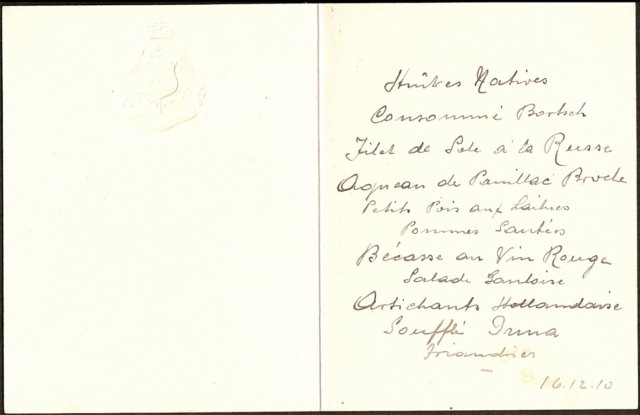 Huîtres Natives
Consommé Bortsch
Filet de Sole à la Russe
Agneau de Pauillac Broche
Petits Pois aux Laitues
Pommes Sautées
Bécasse au Vin Rouge
Salade Gauloise
Artichauts Hollandaise
Soufflé Irma
Friandises
16.12.10